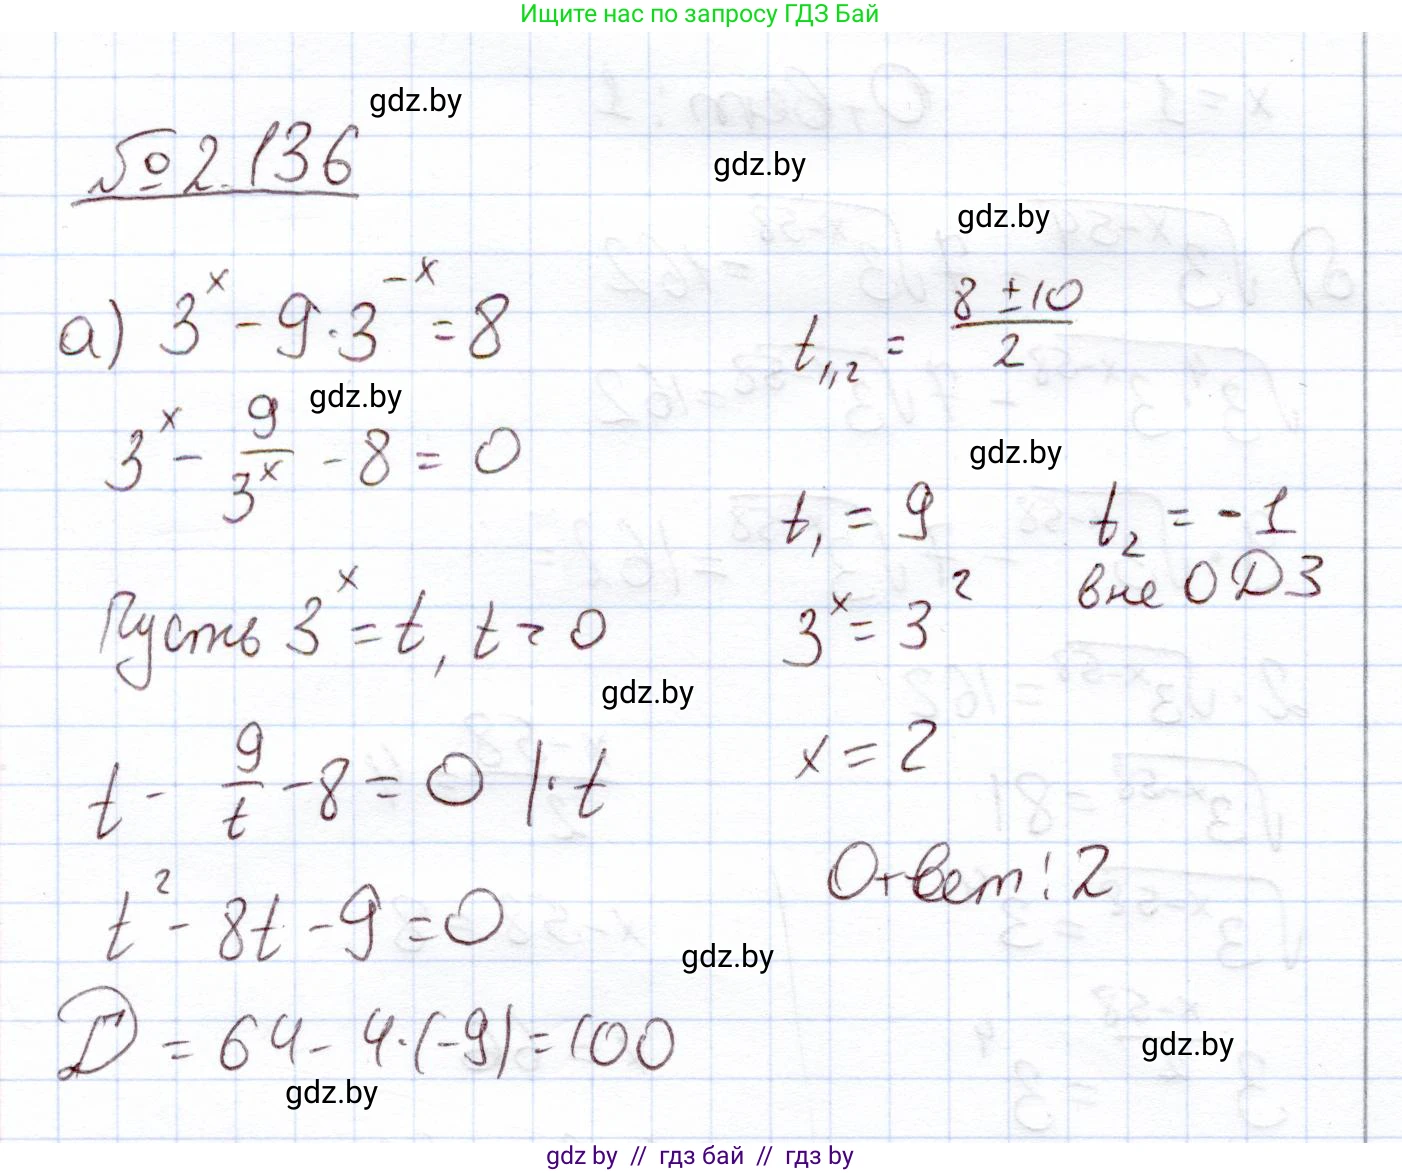 Ищите нас по запросу ГДЗ Бай
gdz.by
№ 2.136
gdz.by
gdz.by
а) 3^x - 9·3^{-x} = 8
gdz.by
3^x - 9/3^x - 8 = 0
Пусть 3^x = t, t > 0
gdz.by
t - 9/t - 8 = 0 |·t
t² - 8t - 9 = 0
gdz.by
D = 64 - 4·(-9) = 100
gdz.by
t_{1,2} = (8 ± 10)/2
gdz.by
t₁ = 9 t₂ = -1
вне ОДЗ
3^x = 3²
x = 2
Ответ: 2
gdz.by
gdz by // гдз бай // гдз by